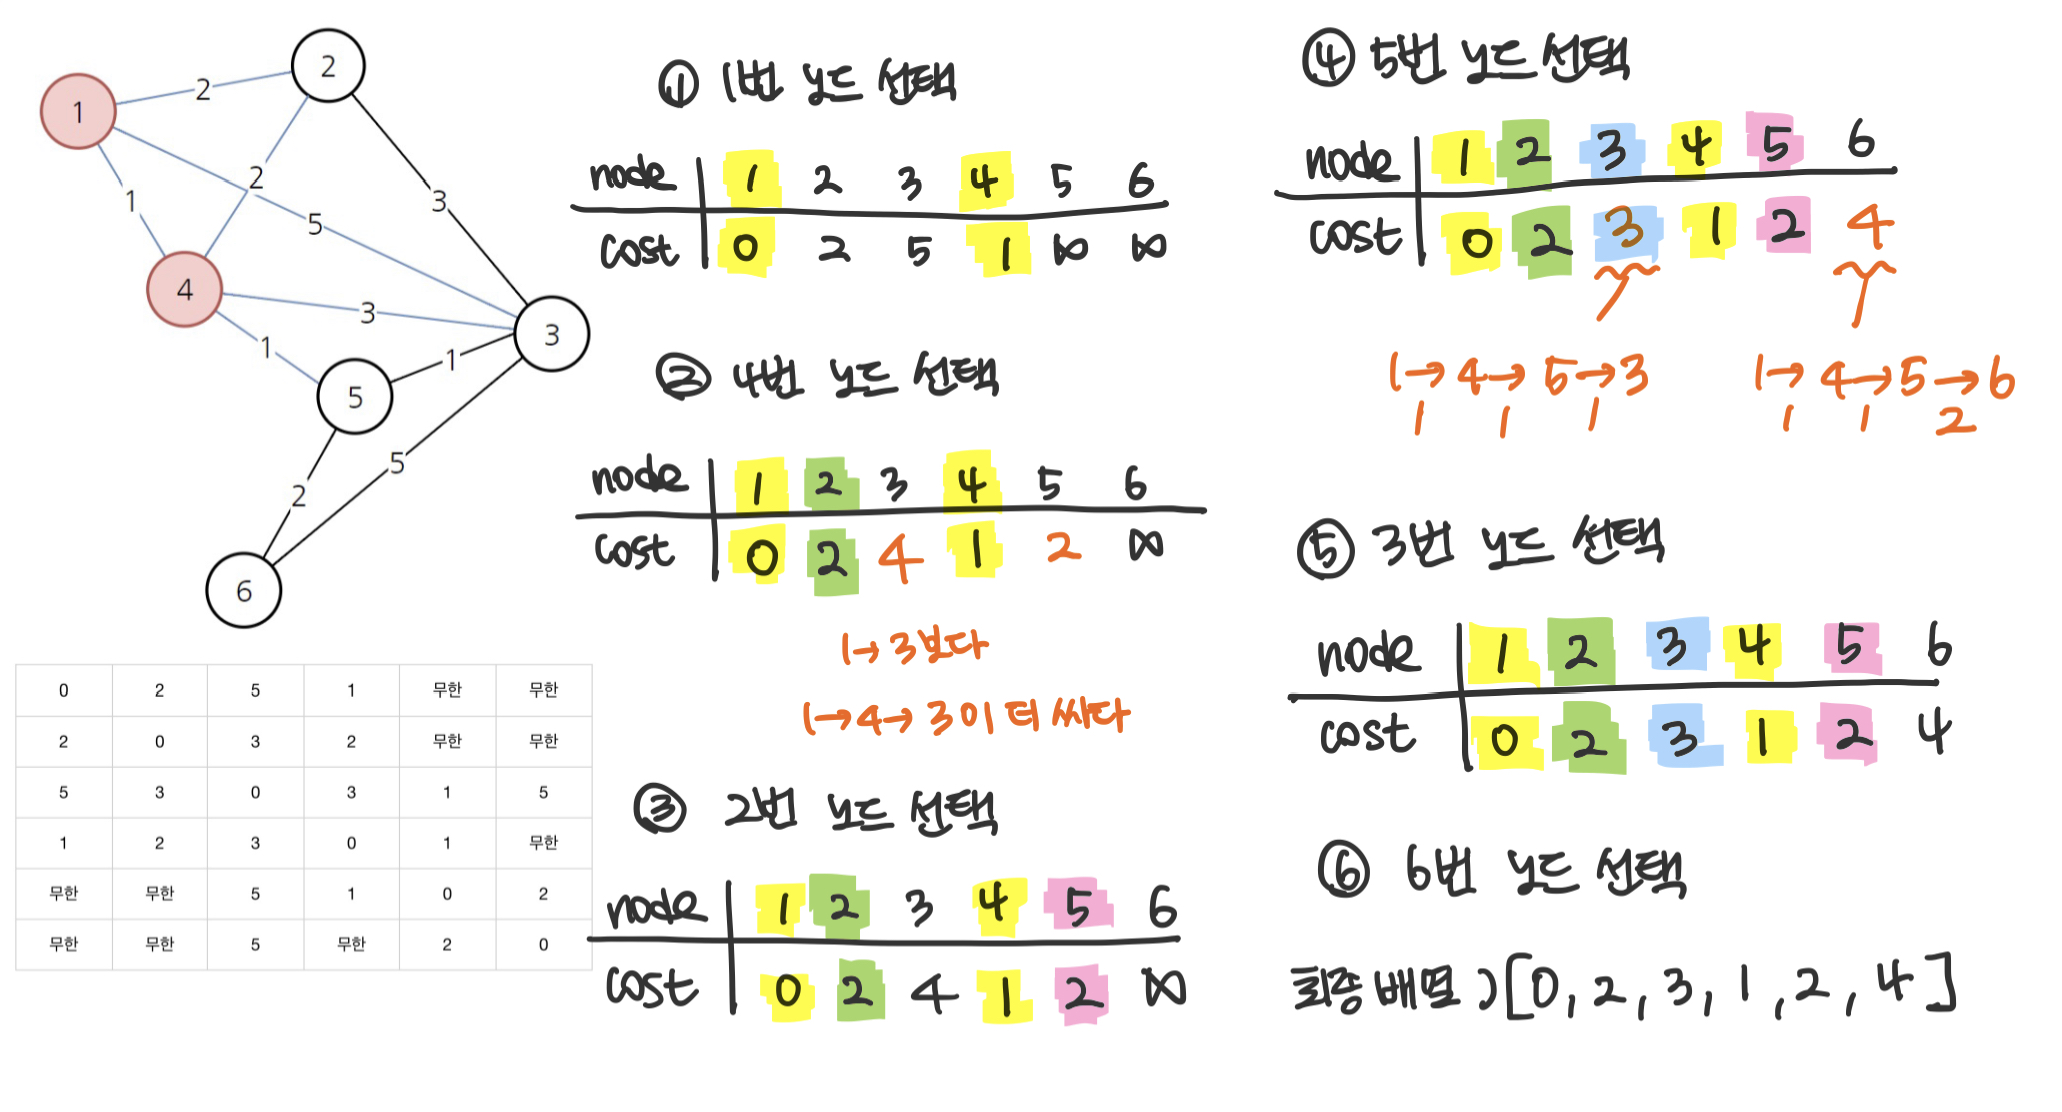 1
2
3
4
5
6
2
1
2
5
3
3
1
1
2
5
0 2 5 1 무한 무한
2 0 3 2 무한 무한
5 3 0 3 1 5
1 2 3 0 1 무한
무한 무한 5 1 0 2
무한 무한 5 무한 2 0
① 1번 노드 선택
node 1 2 3 4 5 6
cost 0 2 5 1 ∞ ∞
② 4번 노드 선택
node 1 2 3 4 5 6
cost 0 2 4 1 2 ∞
1→3보다
1→4→3이 더 싸다
③ 2번 노드 선택
node 1 2 3 4 5 6
cost 0 2 4 1 2 ∞
④ 5번 노드 선택
node 1 2 3 4 5 6
cost 0 2 3 1 2 4
1→4→5→3 1→4→5→6
1 1 1 1 1 2
⑤ 3번 노드 선택
node 1 2 3 4 5 6
cost 0 2 3 1 2 4
⑥ 6번 노드 선택
최종 배열 ) [0, 2, 3, 1, 2, 4]